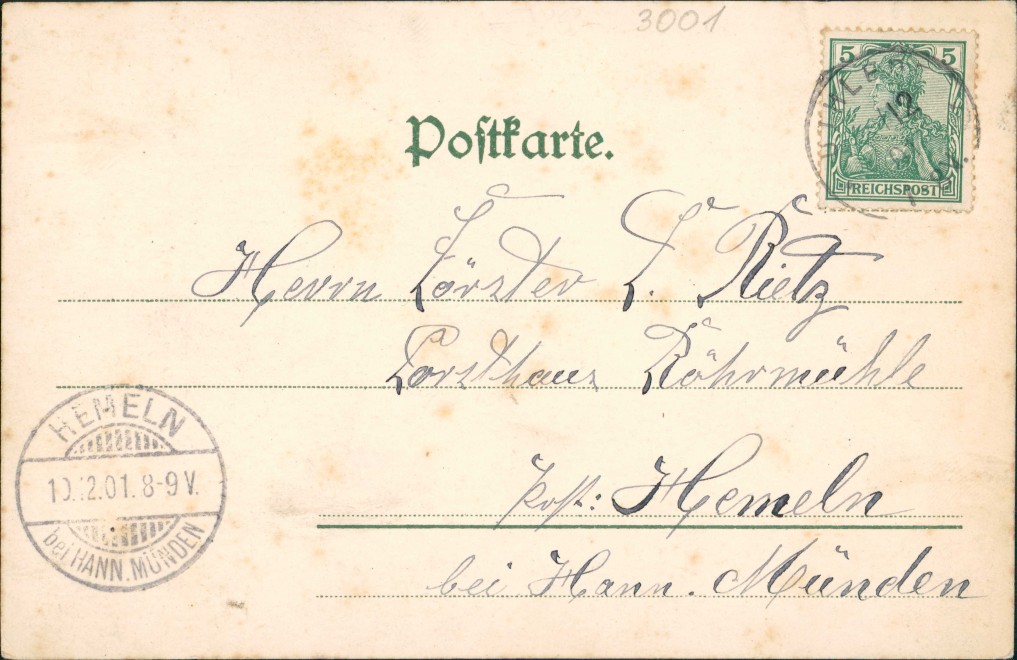 3001
5 5
12
REICHSPOST
Postkarte.
Herrn Förster F. Rietz
Forsthaus Röhrmühle
HEMELN
10.12.01. 8-9 V.
bei HANN. MÜNDEN
Post: Hemeln
bei Hann. Münden